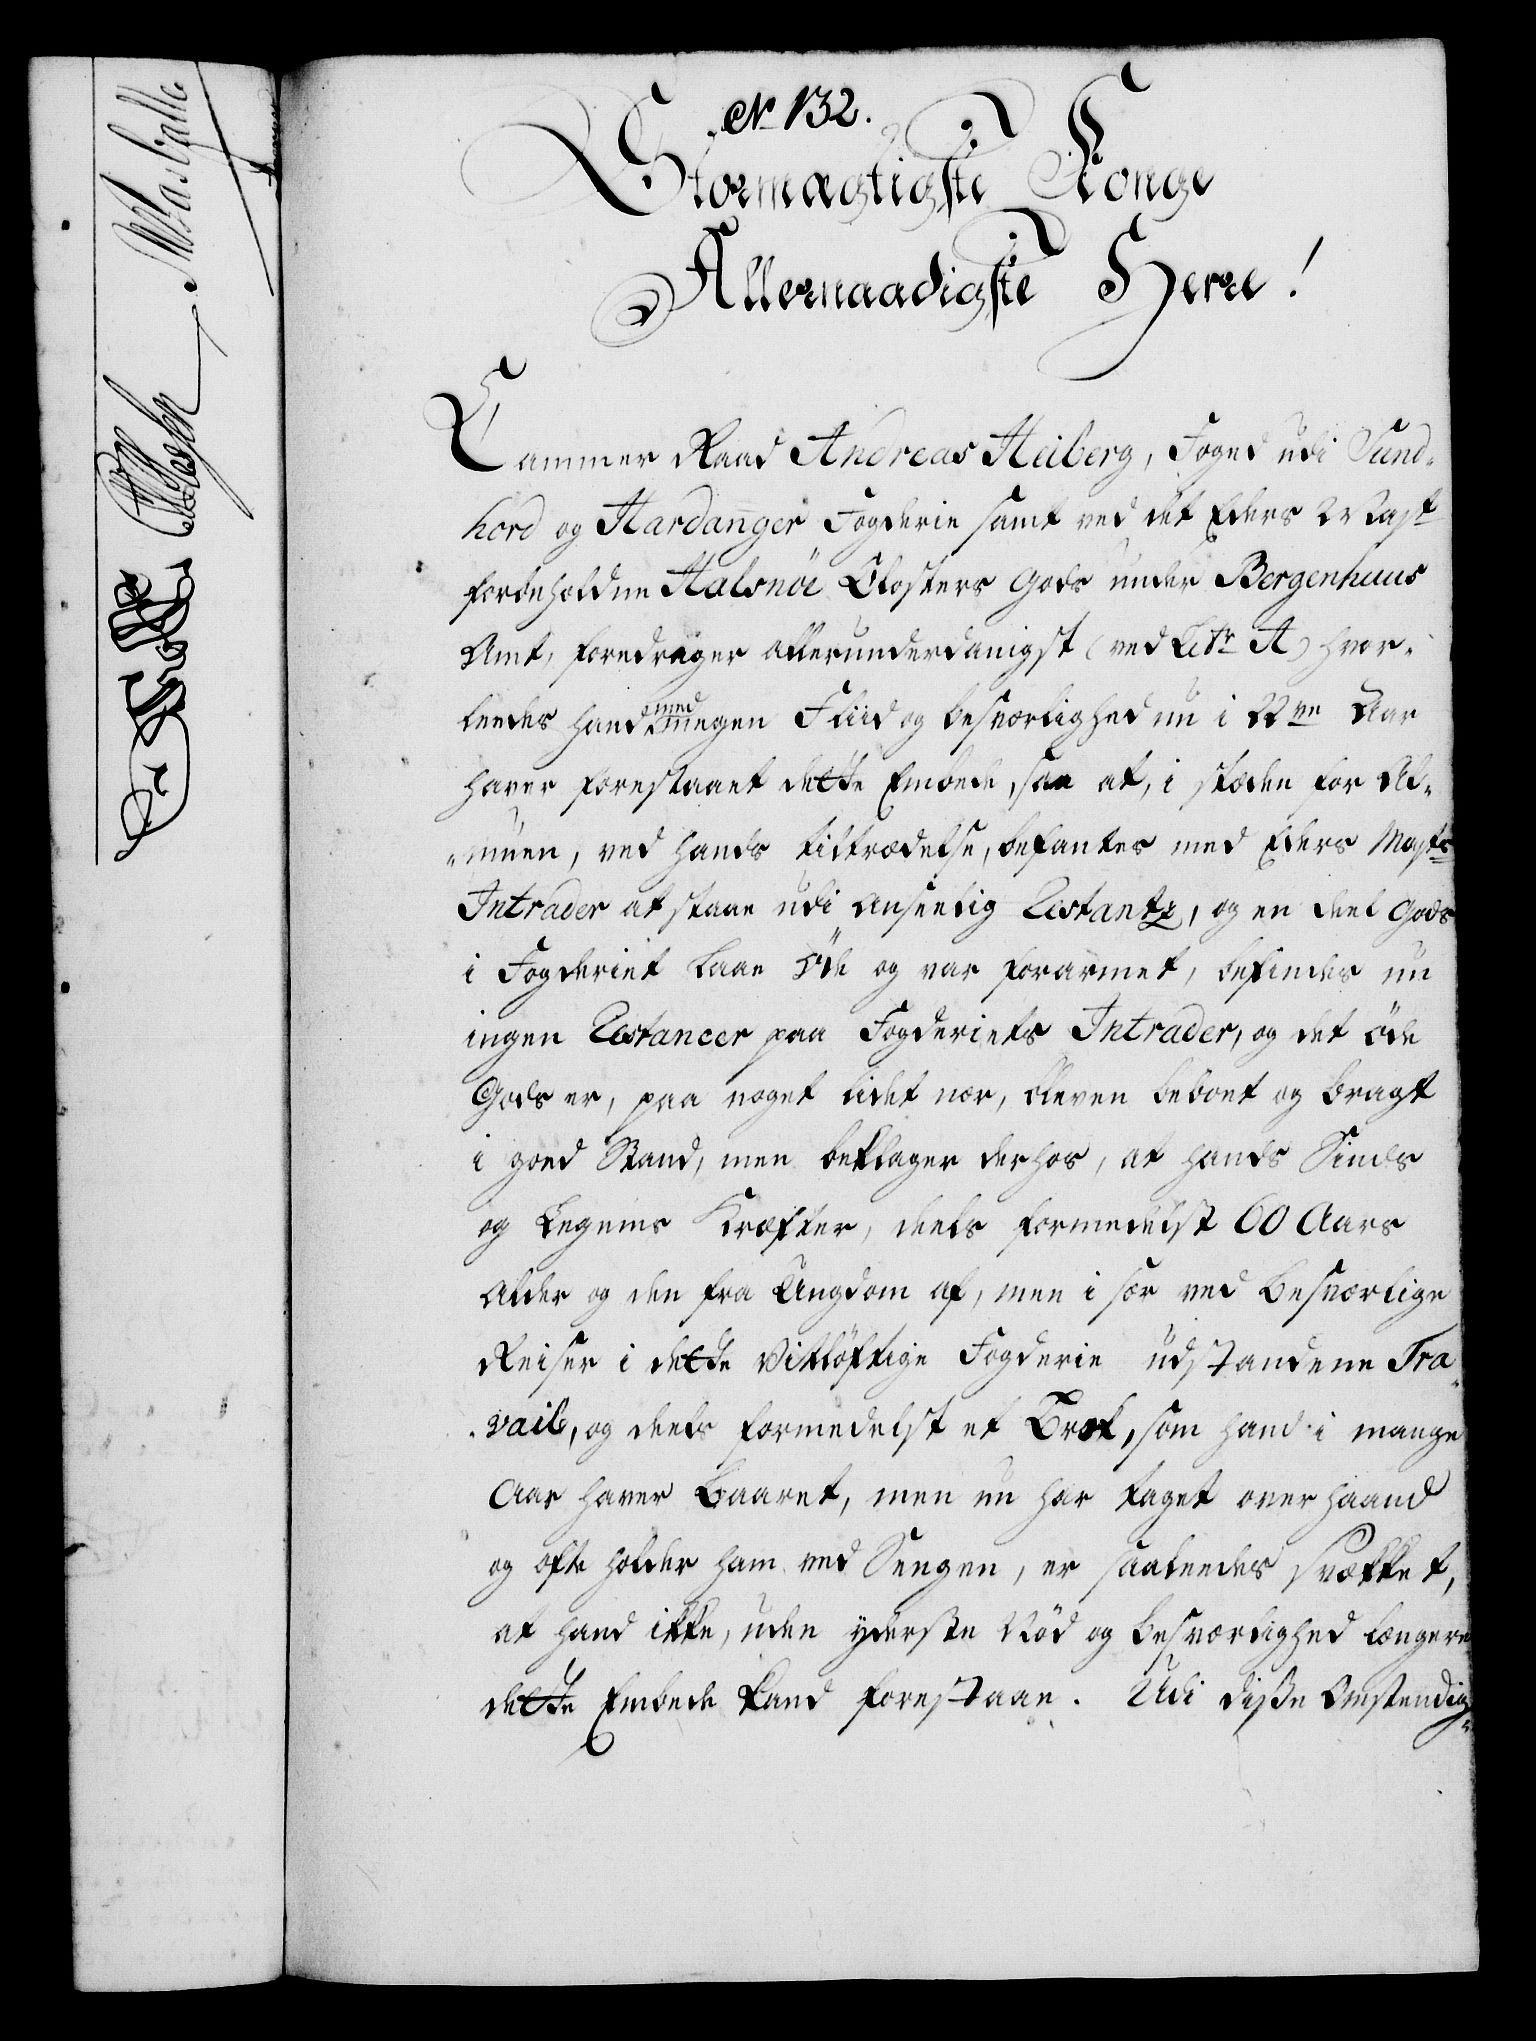 No 132.
Stormægtigste Konge
Allernaadigste Herre!
Cammer Raad Andreas Heiberg, Foged udi Sund-
hord og Hardanger Fogderie samt ved det Eders Mayst
forbeholdne Halsnöe Closters Gods under Bergenhuus
Amt, foredrager allerunderdanigst (ved Litr A) hvor-
leedes hand med megen Fliid og besværlighed nu i 22ve Aar
haver forestaaet dette Embede, saa at, i stæden for Al-
muen, ved hands tiltrædelse, befantes med Eders Maysts
Intrader at staae udi anseelig Restantz, og en deel Gods
i Fogderiet laae Öde og var forarmet, befindes nu
ingen Restancer paa Fogderiets Intrader, og det öde
Gods er, paa noget lidet nær, bleven beboet og bragt
i goed Stand, men beklager derhos, at hands Sinds
og Legems Kræfter, deels formedelst 60 Aars
Alder og den fra Ungdom af, men i sær ved besværlige
Reiser i dette Vitlöftige Fogderie udstandene Tra-
vail, og deels formedelst et Brok, som hand i mange
Aar haver baaret, men nu har taget over haand
og ofte holder ham ved Sengen, er saaleedes svækket,
at hand ikke, uden yderste Nöd og besværlighed længere
dette Embede kand forestaae. Udi disse Omstendig-